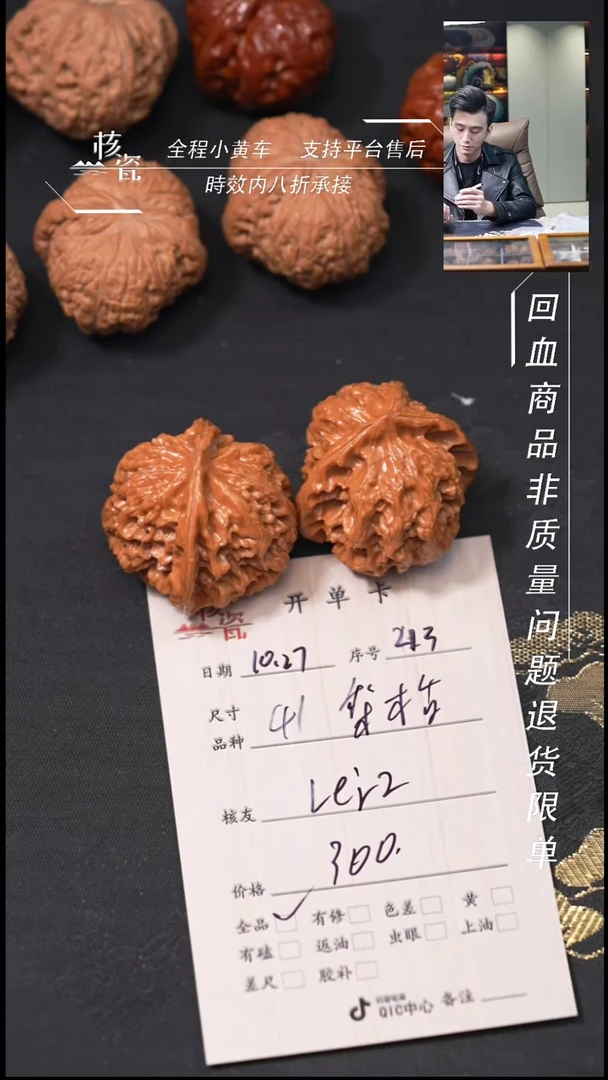 核瓷
全程小黄车 支持平台售后
時效内八折承接
回血商品非质量问题退货限单
核瓷
开单卡
日期 10.27 序号 243
尺寸
品种 41
核友 Lejr2
价格 300.
全品 有修 色差 黄
有磕 返油 虫眼 上油
差尺 胶补
QIC中心 备注